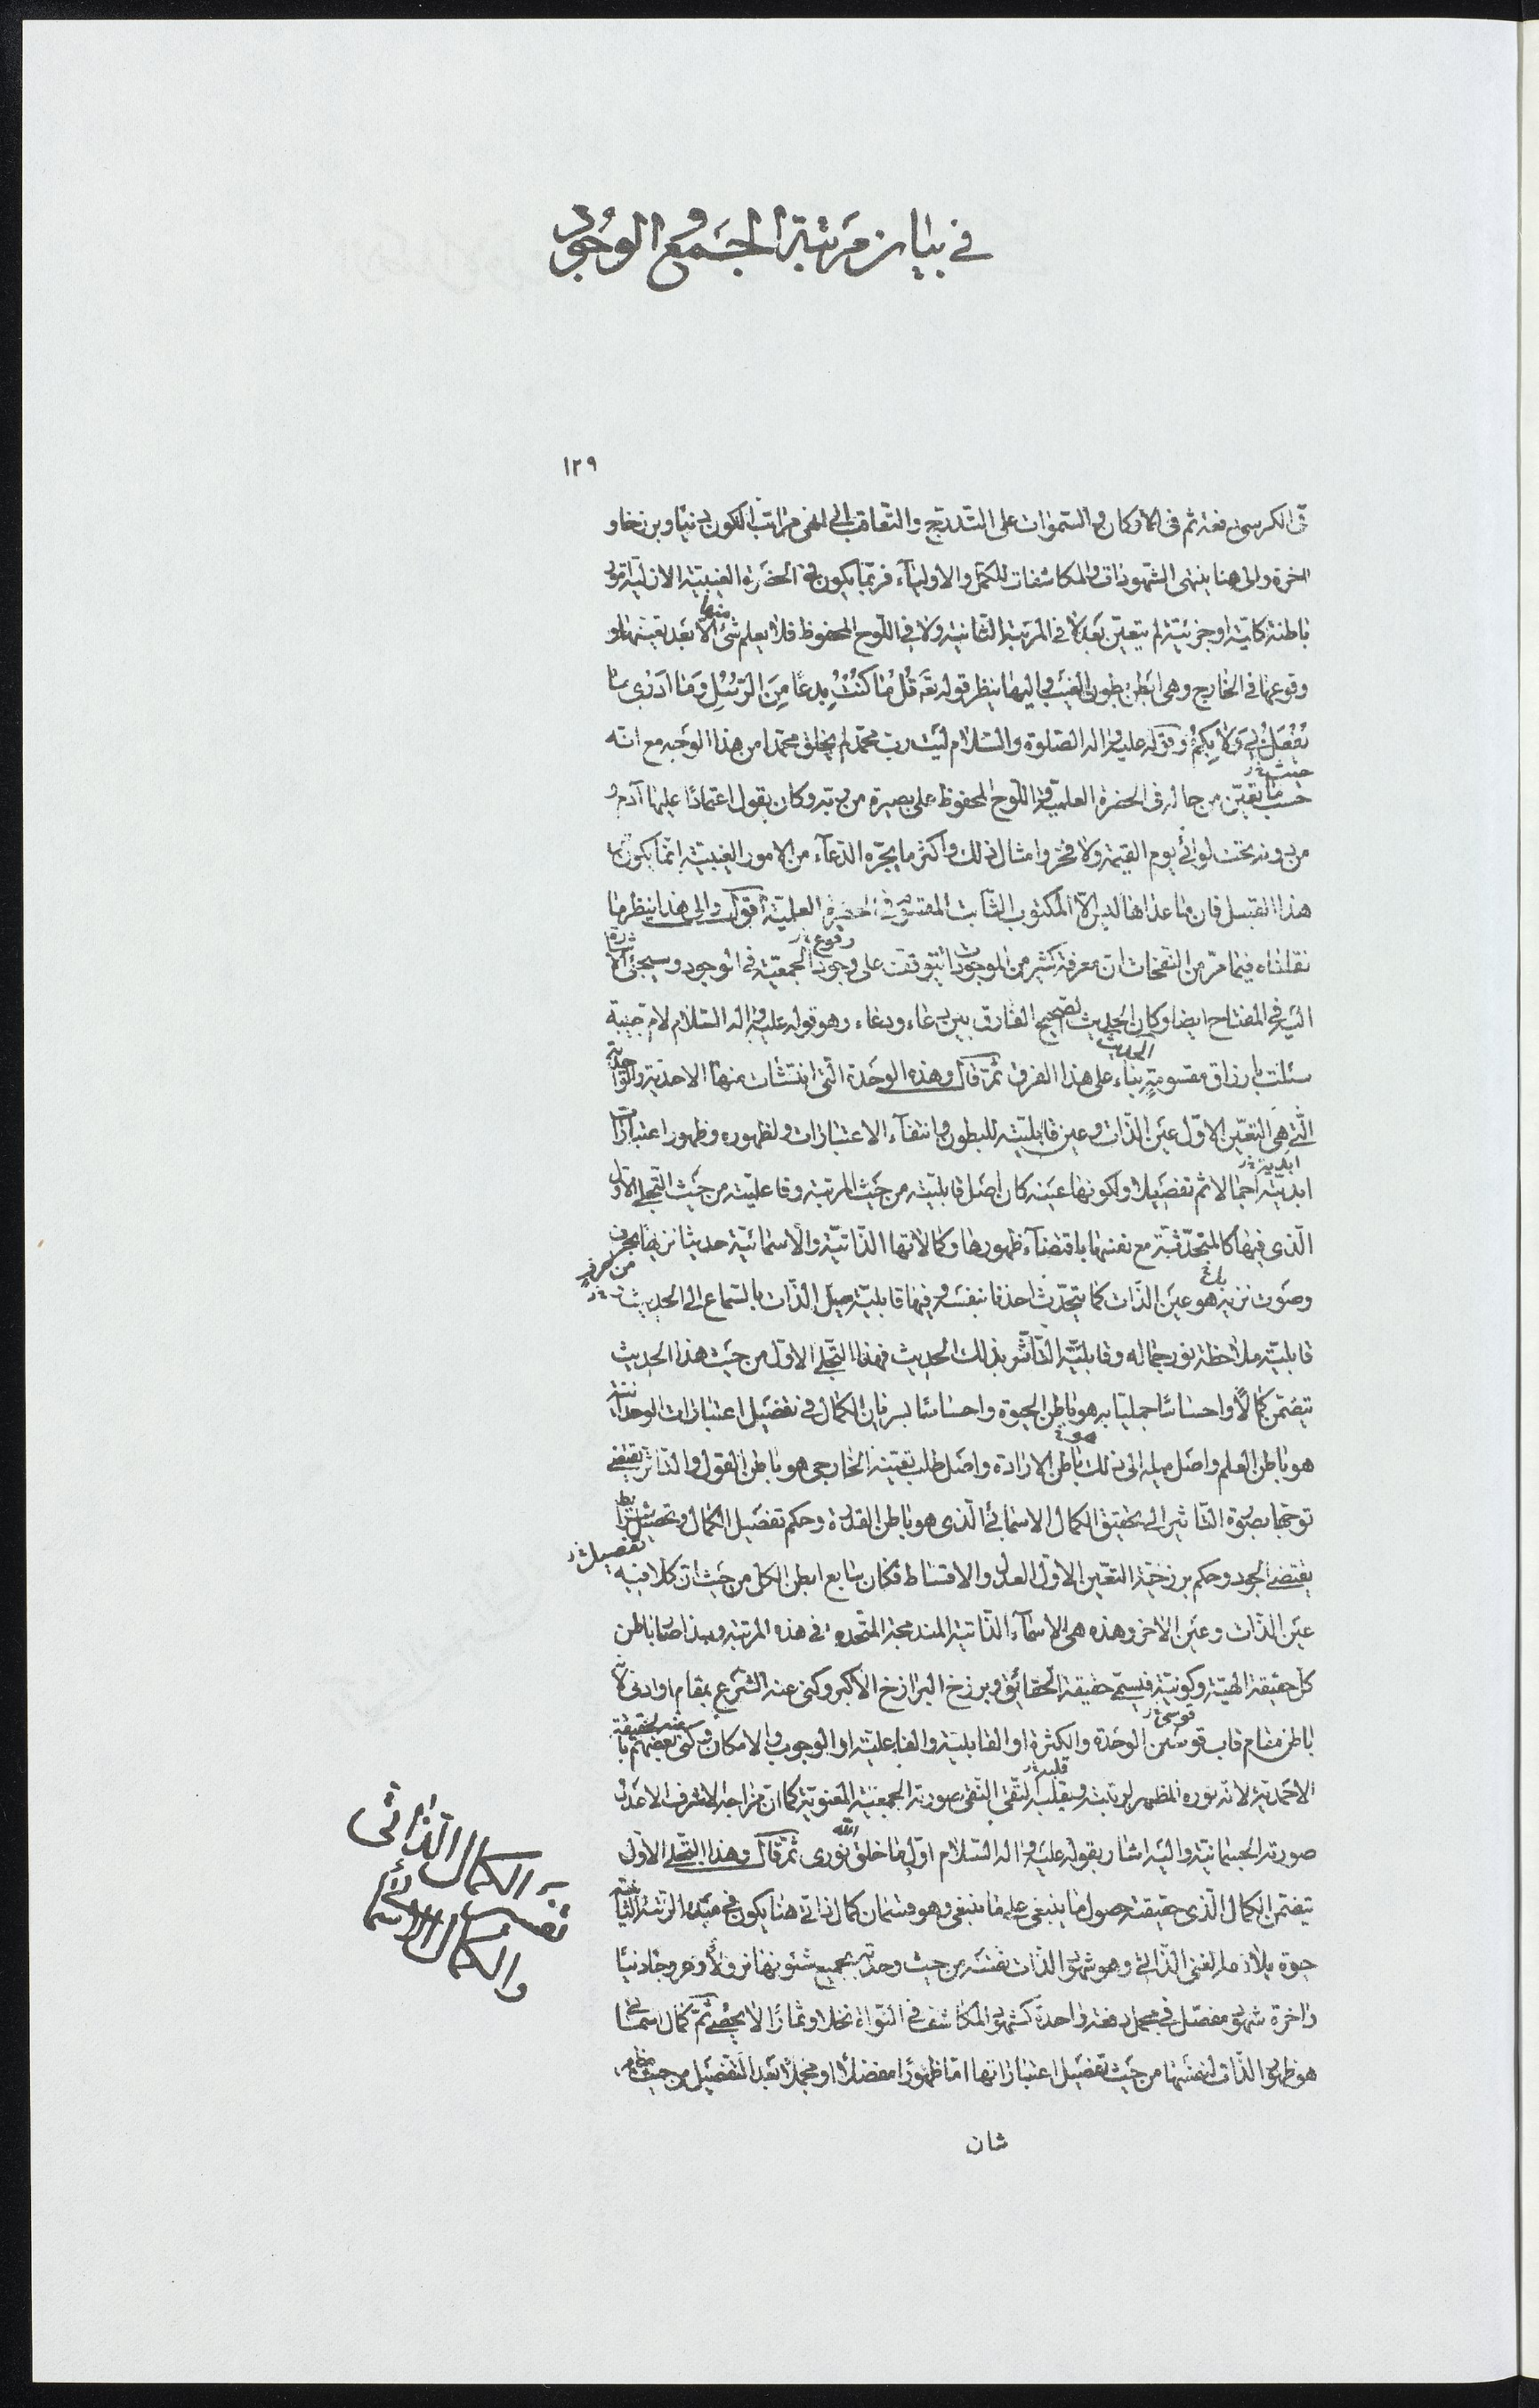 في بيان مرتبة الجمع و الوجود
١٢٩
في الكرسي دفعة ثم في الاركان والسموات على التدريج والتعاقب الى انهى مراتب الكون دنيا وبرزخا و
اخرة والى هنا ينتهى الشهودات والمكاشفات للكمل والاولياء فربما يكون في الحضرة الغيبية الازلية امور
باطنة كلية او جزئية لم يتعين بعد لا في المرتبة الثانية ولا في اللوح المحفوظ فلا يعلم شئ منها الا بعد تعينها او
وقوعها في الخارج وهي ابطن بطون الغيب واليها ينظر قوله تعه قُل مَا كُنتُ بِدعًا مِنَ الرُّسُلِ وَمَا اَدْرِى مَا
يُفْعَلُ بِي وَلا بِكُمْ وقوله عليه واله الصلوة والسلام ليت رب محمد لم يخلق محمدا من هذا الوجه مع انه
حيث
حسب ما تعين من حاله في الحضرة العلمية واللوح المحفوظ على بصيرة من ربه وكان يقول اعتمادا عليها آدم و
من دونه تحت لوائى يوم القيمة ولا فخر وامثال ذلك واكثر ما يجره الدعاء من الامور الغيبية انما يكون من
هذا القبيل فان ما عداها ليس الا المكتوب الثابت في الحضرة العلمية اقول والى هذا ينظر ما
وقوع
نقلناه فيما مر من النفحات ان معرفة كثير من الموجودات يتوقف على وجود الجمعية في الوجود وسيجئ الاشارة
اليه في المفتاح ايضا وكان الحديث الصحيح الفارق بين دعاء ودعاء وهو قوله عليه واله السلام لام حبيبة
الحديث
سئلت بارزاق مقسومة بناء على هذا الفرق ثم قال وهذه الوحدة التى انتشات منها الاحدية والواحدية
التى هي التعين الاول عين الذات وعين قابليته للبطون وانتفاء الاعتبارات ولظهوره وظهور اعتبارات
ابدية
ابديته اجمالا ثم تفصيلا ولكونها عينه كان اصل قابليته من حيث المرتبة وفاعليته من حيث التجلى الاول
الذى فيها كالمتحدثة مع نفسها باقتضاء ظهورها وكمالاتها الذاتية والاسمائية حديثا نزيها بحرف
من حرف
وصوت نزيه هو عين الذات كما يتحدث احدنا بنفسه وفيها قابلية ميل الذات بالسماع الى الحديث
قابلية ملاحظة نور جماله وقابلية التأثر بذلك الحديث فهذا التجلى الاول من حيث هذا الحديث
يتضمن كمالا واحساسا جمليا به هو باطن الحيوة واحساسا بسريان الكمال في تفصيل اعتبارات الوحدانية
هو باطن العلم واصل ميله الى ذلك باطن الارادة واصل طلب تعينه الخارجى هو باطن القول والتاثر يقتضى
توجها بصورة التاثير الى تحقيق الكمال الاسمائي الذى هو باطن القدرة وحكم تفصيل الكمال وتحصيل شرائط
تفصيل
يقتضى الجود وحكم برزخية التعين الاول العدل والاقساط فكان سابع ابطن الكل من حيث ان كلا فيه
عين الذات وعين الاخر وهذه هي الاسماء الذاتية المندمجة المتحدة في هذه المرتبة وبذا صار باطن
كل حقيقة الهية وكونية فيسمى حقيقة الحقائق وبرزخ البرازخ الاكبر وكنى عنه الشرع بمقام او ادنى لانه
قوسى
باطن مقام قاب قوسين الوحدة والكثرة او القابلية والفاعلية او الوجوب والامكان وكنى بعضهم عنه بالحقيقة
الاحمدية لانه نوره المظهر لربانيته وبقلبه التقى النقى صورته الجمعية المعنوية كما ان مزاجه الاشرف الاعدل
صورته الجسمانية واليه اشار بقوله عليه واله السلام اول ما خلق الله نورى ثم قال وهذا التجلى الاول
يتضمن الكمال الذى حقيقته حصول ما ينبغى على ما ينبغى وهو قسمان كمال ذاتى هنا يكون في مبدء الرتبة الثانية
حيوة يلازمها الغنى الذاتى وهو شهود الذات نفسه من حيث وحدته بجميع شئونها نزولا وعروجا دنيا
واخرة شهود مفصل في مجمل دفعة واحدة كشهود المكاشف في النواة نخلا وثمارا لا يحصى ثم كمال اسمائى
هو ظهور الذات لنفسها من حيث تفصيل اعتباراتها اما ظهورا مفصلا او مجملا بعد التفصيل من حيث مظهره
شان
الكمال الذاتى
والكمال الاسمائى